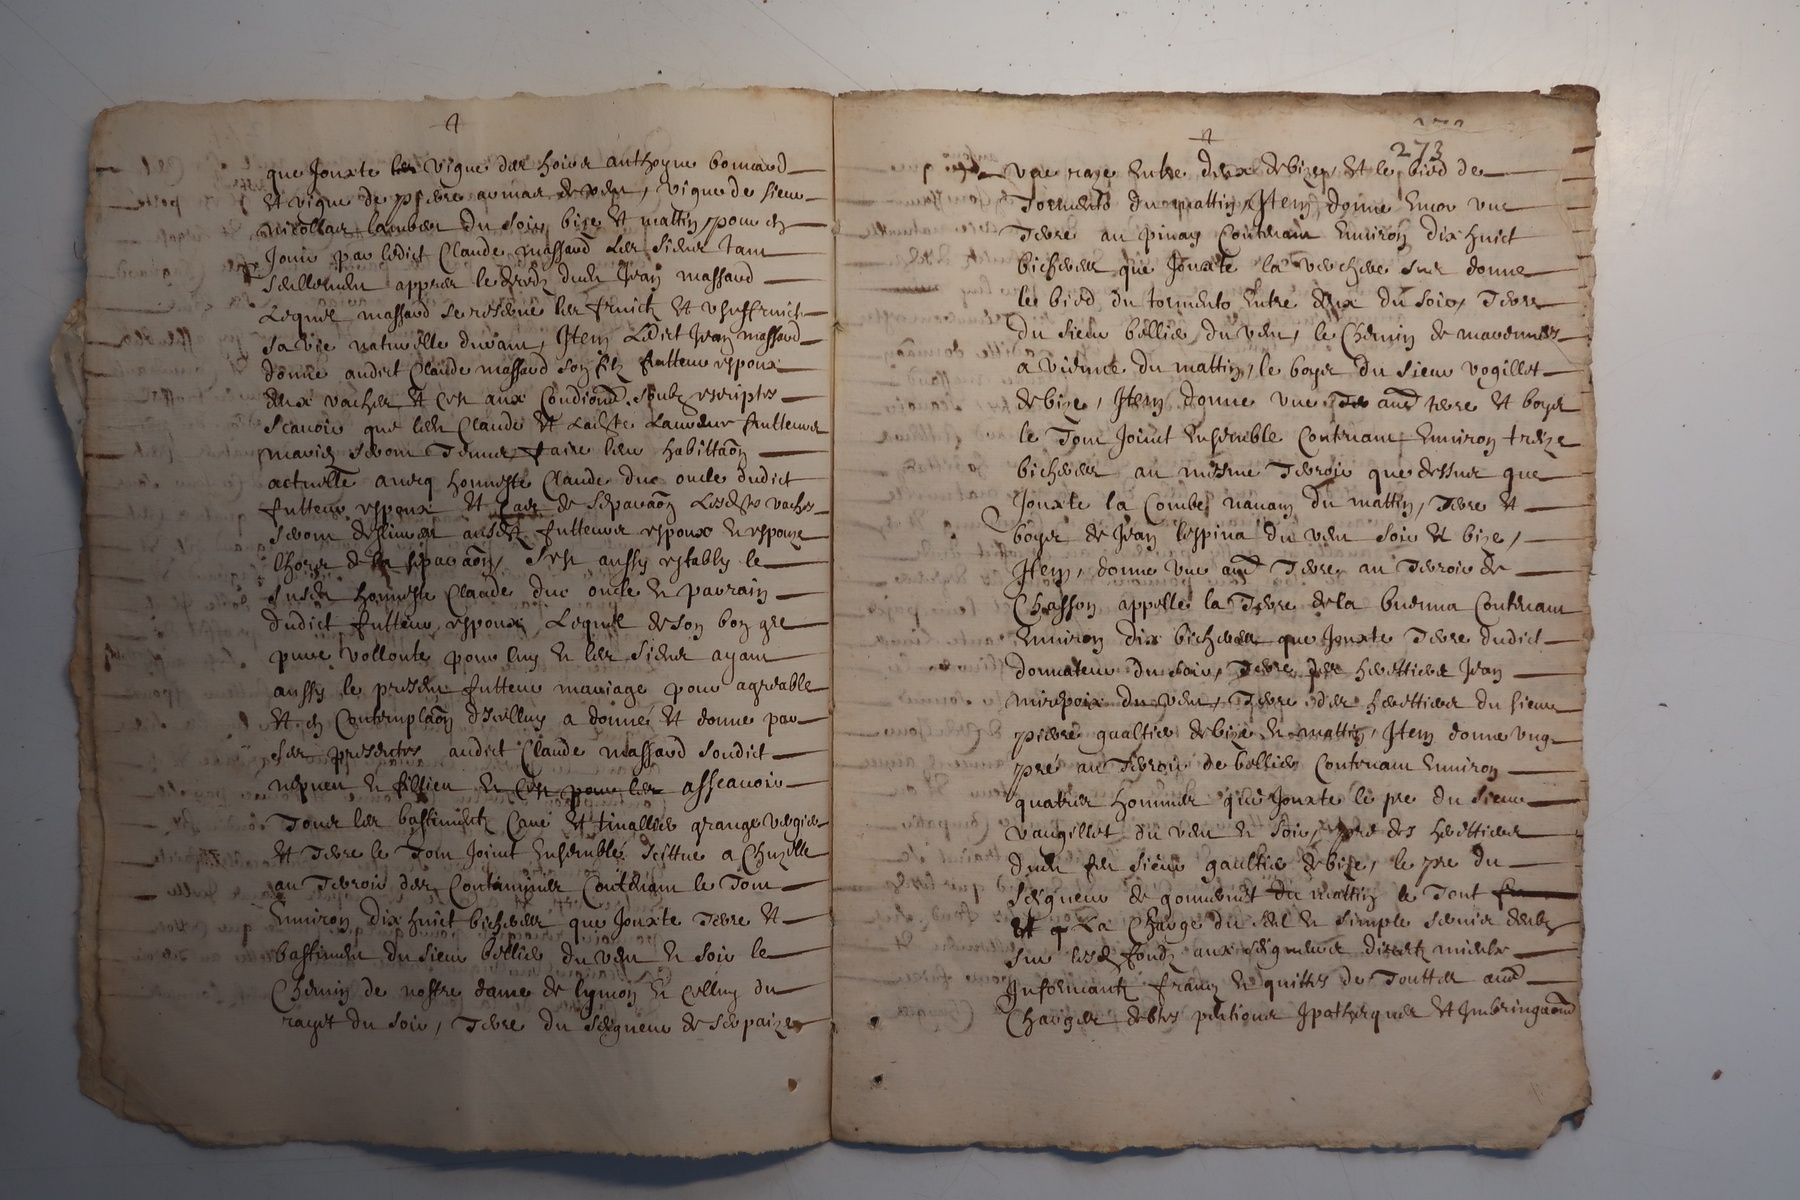 que Jouxte les vigne des hoirs anthoyne bonnard
Et vigne de pierre aymar de vent, vigne de sieur
nicollas lambert du soir, bize Et mattin, pour en
Jouir par ledict Claude massard Les siens tant
seullement apprès le decedz dudt Jean massard
Lequel massard se reserve les fruictz Et usuffruictz
sa vie naturelle durant, Item Ledict Jean massard
donne audict Claude massard son filz futteur espoux
deux vaches Et c'est aux Conditions soubz escriptes
scavoir que lesd Claude Et futteurs
mariés seront Tenus faire leur habittaon
actuelle avecq honneste Claude duc oncle dudict
futteur espoux Et de separaon Lesdtes vaches
seront ausdt futteurs espoux Et espouze
lhors de la separaon, s'est aussy establÿ le
susdt honneste Claude duc oncle Et parrain
dudict futteur espoux, Lequel de son bon gre
pure vollonte pour luy Et les siens ayant
aussy le present futteur mariage pour agreable
Et en Contemplaon d'Icelluy a donné Et donne par
ses presentes audict Claude massard soudict
nepveu Et fillieu Et c'est pour les assçavoir
Tous les bastimentz Cave Et tinallier grange vergier
Et Terre le Tout Joinct Ensemble scittué a Chuzelle
au Terroir des Contamines Contenant le Tout
Environ dix huict bicherees que Jouxte Terre Et
bastiment du sieur bellier du vent Et soir le
Chemin de nostre dame de lymon Et Celluy du
du soir, Terre du seigneur de serpaize
273
une raze Entre deux de bize, Et le bied de
Torments du mattin, Item donne Encor une
Terre au pinay Contenant Environ dix huict
bicherees que Jouxte la verchere sus donne
le bied du tormento Entre deux du soir, Terre
du sieur bellier du vent, le Chemin de marennes
a vienne du mattin, le boys du sieur vogillet
de bize, Item donne une aue terre Et boys
le Tout Joinct Ensemble Contenant Environ treize
bicherees au mesme Terroir que dessus que
Jouxte la Combe navam du mattin, Terre Et
boys de Jean lespina du vent soir Et bize,
Item, donne une aue Terre au Terroir de
Chasson appellé la Terre de la buenna Contenant
Environ dix bicherees que Jouxte Terre dudict
donnateur du soir, Terre des herittiers Jean
mirepoix du vent, Terre des herittiers du sieur
pierre gaultier de bize Et mattin, Item donne ung
pré au Terroir de bellier Contenant Environ
quattre hommes que Jouxte le pre du sieur
vaugillet du vent Et soir, pre des herittiers
dudt feu sieur gaultier de bize, le pre du
seigneur de gouvernet du mattin le Tout
La Charge du cel Et simple servis deubz
sur lesdt fondz aux seigneurs directz mieulx
Informantz francz Et quittes de Touttes aues
Charges debtes pentions Ipotheques Et Imbringaons